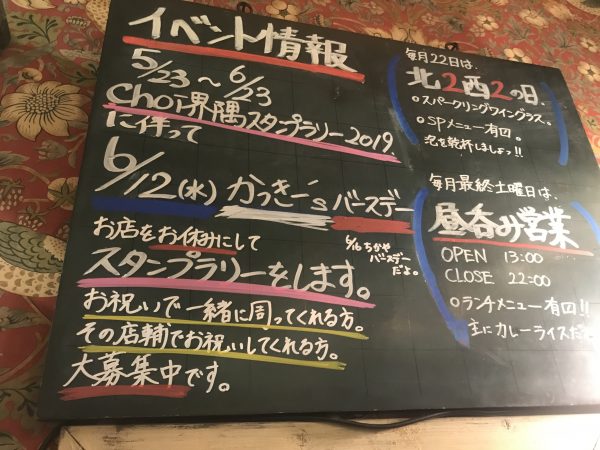 イベント情報
5/23〜6/23
Choi界隅スタンプラリー2019
に伴って
6/12(水)かっきー'sバースデー
6/16ちかや
バースデー
だよ。
お店をお休みにして
スタンプラリーをします。
お祝いで一緒に周ってくれる方。
その店舗でお祝いしてくれる方。
大募集中です。
毎月22日は、
北2西2の日。
○スパークリングワイングラス。
○SPメニュー有回。
泡を乾杯しましょっ!!
毎月最終土曜日は、
昼呑み営業
OPEN 13:00
CLOSE 22:00
○ランチメニュー有回!!
主にカレーライスだ